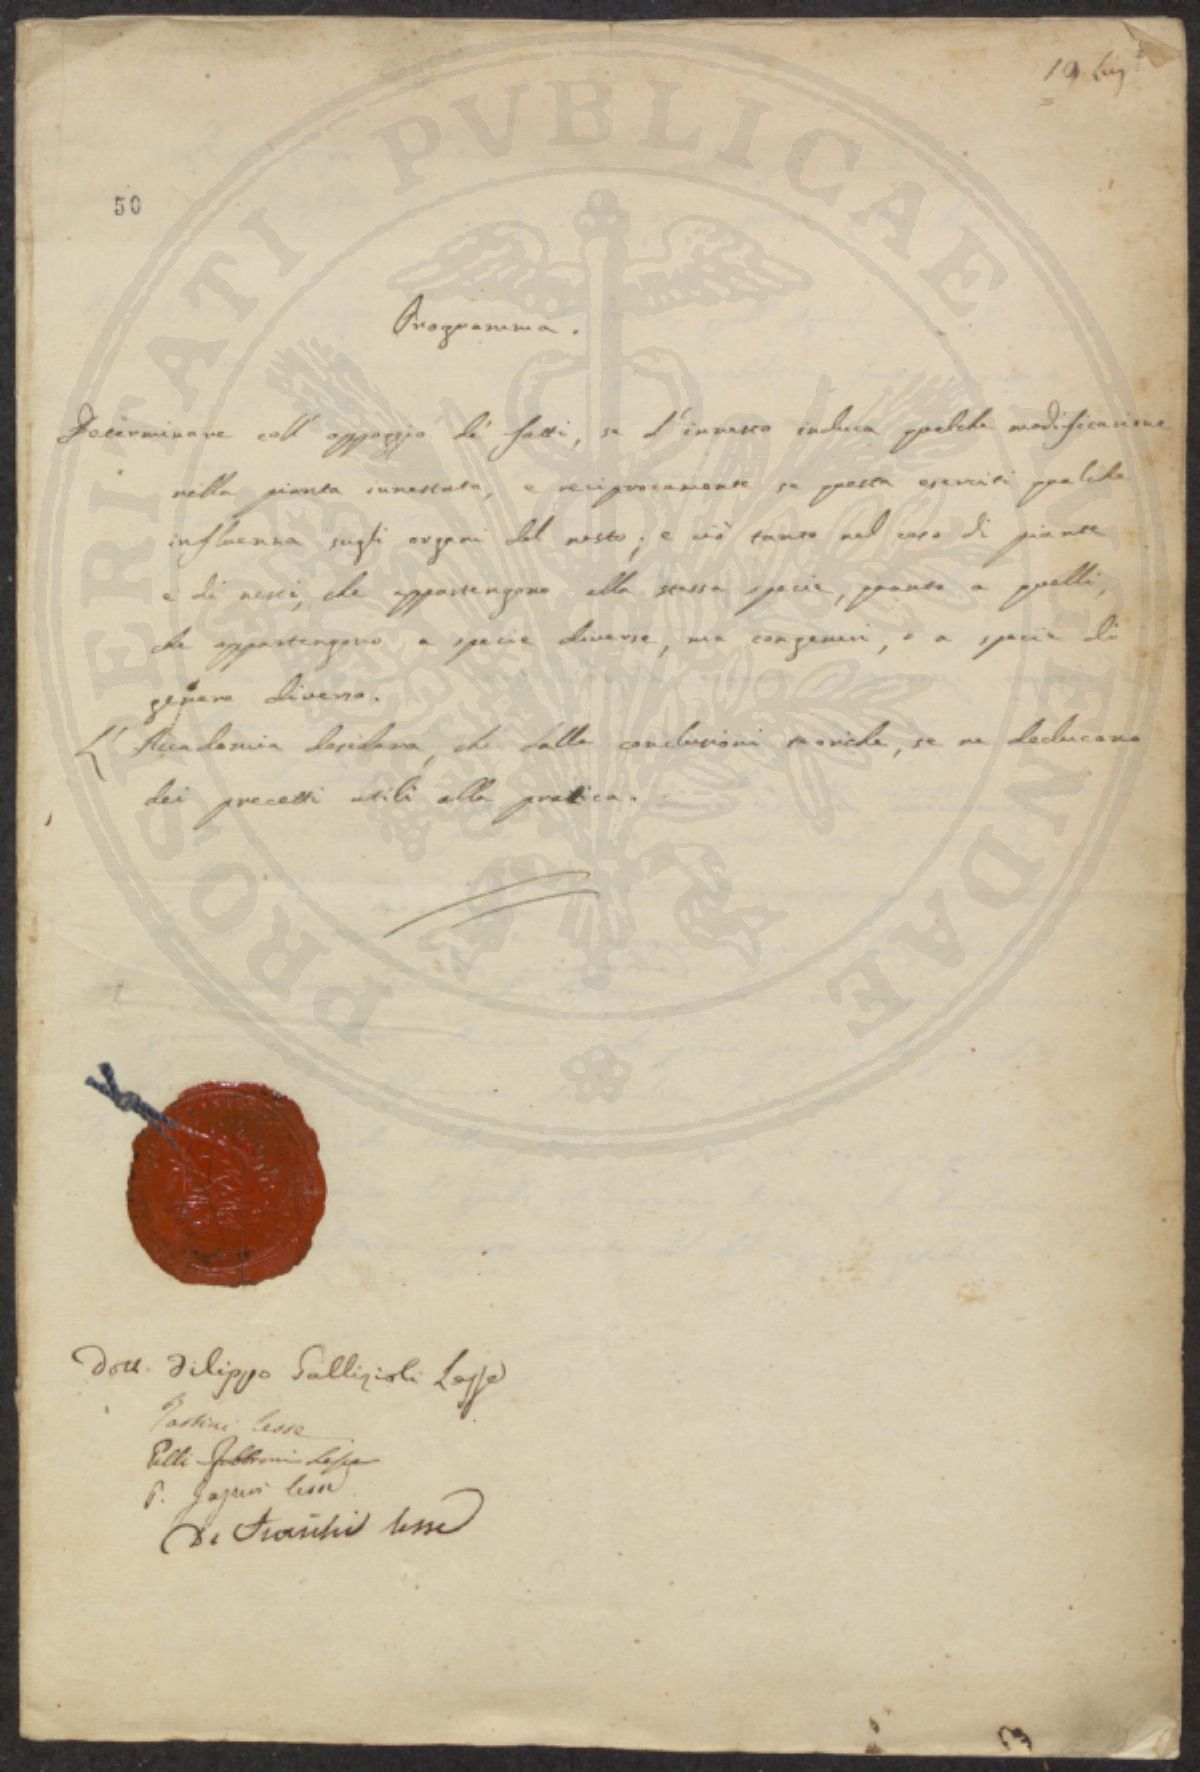 19
50
Programma.
Determinare coll' appoggio de' fatti, se l'innesto induca qualche modificazione
nella pianta innestata, e reciprocamente se questa eserciti qualche
influenza sugli organi del nesto; e ciò tanto nel caso di piante
e di nesti, che appartengono alla stessa specie, quanto a quelli,
che appartengono a specie diverse, ma congeneri, o a specie di
genere diverso.
L'Accademia desidera, che dalle conclusioni teoriche, se ne deducano
dei precetti utili alla pratica.
PROSPERITATI PVBLICAE AVGENDAE
Dott. Filippo Gallizioli Lesse
lesse
Pelli Fabbroni Lesse
lesse
lesse
3